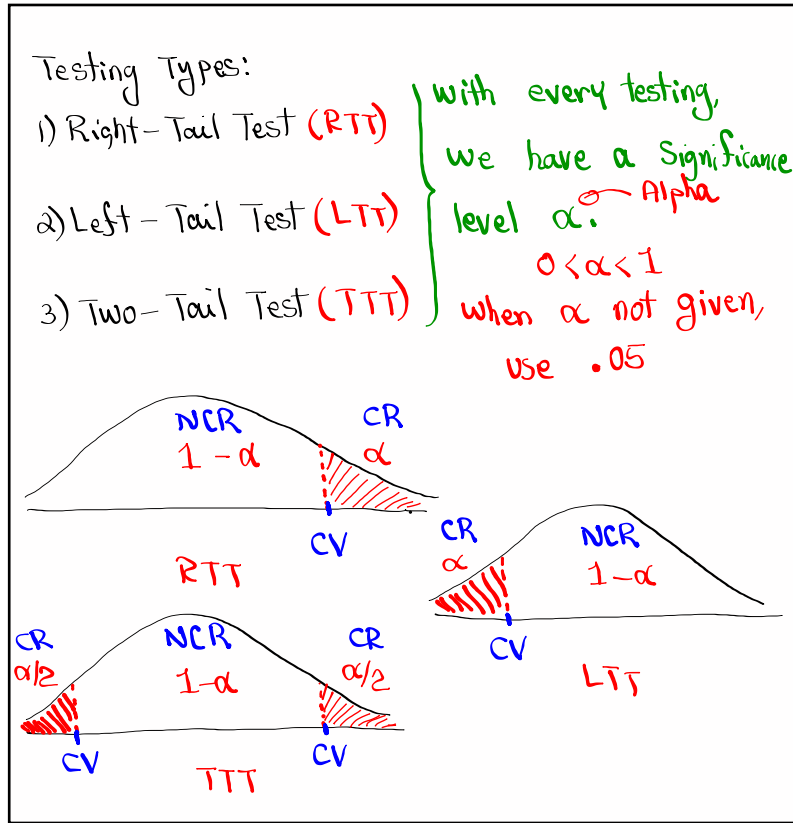 Testing Types:
1) Right-Tail Test (RTT)
2) Left-Tail Test (LTT)
3) Two-Tail Test (TTT)
with every testing,
we have a Significance
level α.
Alpha
0<α<1
when α not given,
use .05
NCR
1-α
CR
α
CV
RTT
CR
α
NCR
1-α
CV
LTT
CR
α/2
NCR
1-α
CR
α/2
CV
CV
TTT